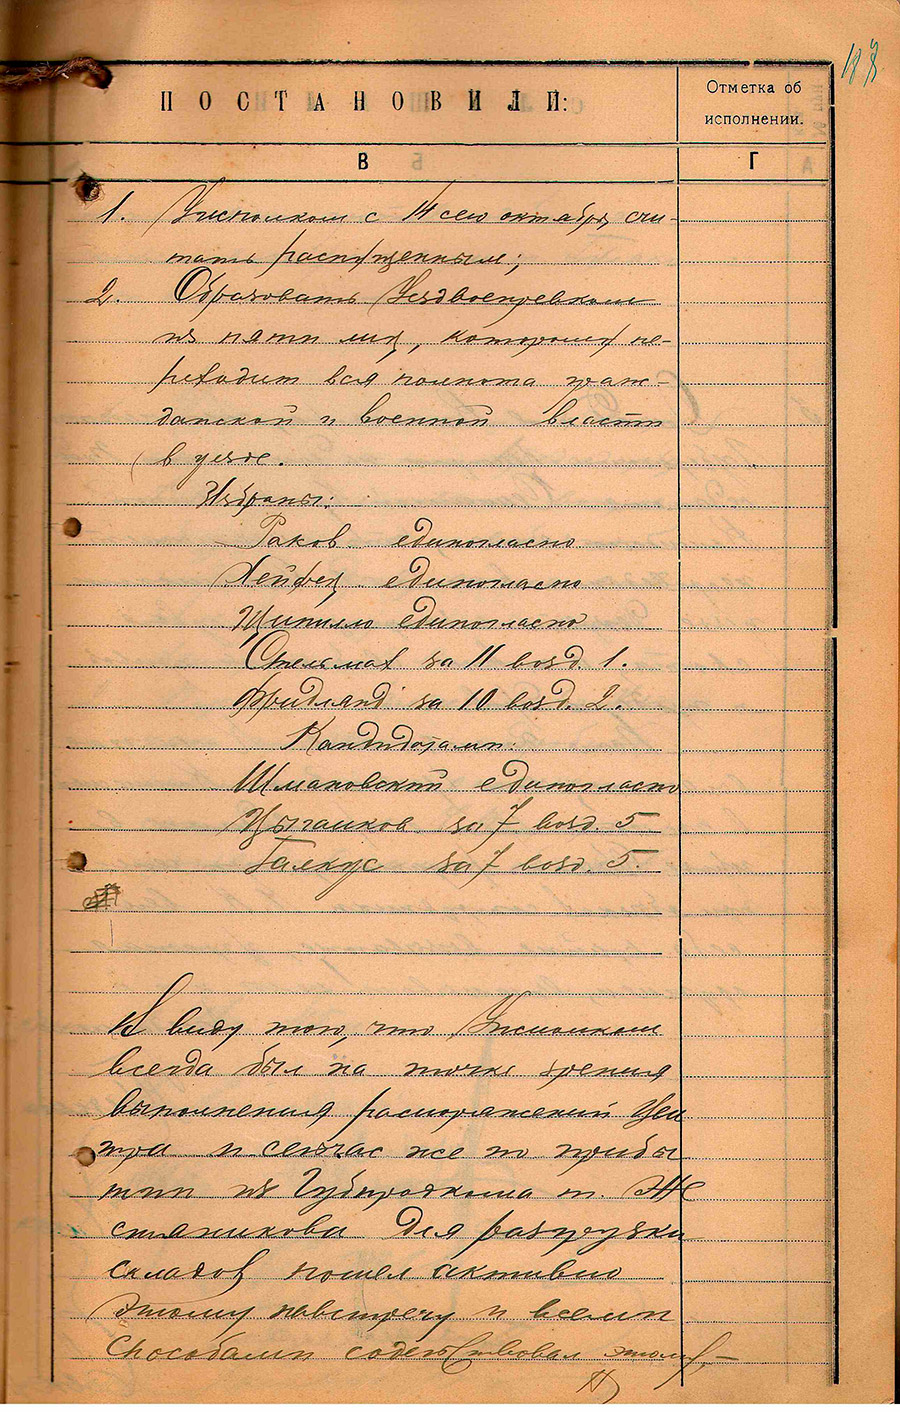 187
ПОСТАНОВИЛИ:
Отметка об
исполнении.
В
Г
1. Уисполком с 14 сего октября, счи-
тать распущенным;
2. Образовать Уездвоенревком
из пяти лиц, которому пе-
реходит вся полнота граж-
данской и военной власти
в уезде.
Избраны:
Раков единогласно
Хейфец единогласно
Ципилло единогласно
Стельмах за 11 возд. 1.
Фридлянд за 10 возд. 2.
Кандидатами:
Шмаковский единогласно
Цыганков за 7 возд. 5
Галкус за 7 возд. 5.
В виду того, что Уисполком
всегда был на точке зрения
выполнения распоряжений Цен
тра и сейчас же по прибы
тии из Губпродкома т. Же
стяникова для разгрузки
складов пошел активно
этому навстречу и всеми
способами содействовал этому, –